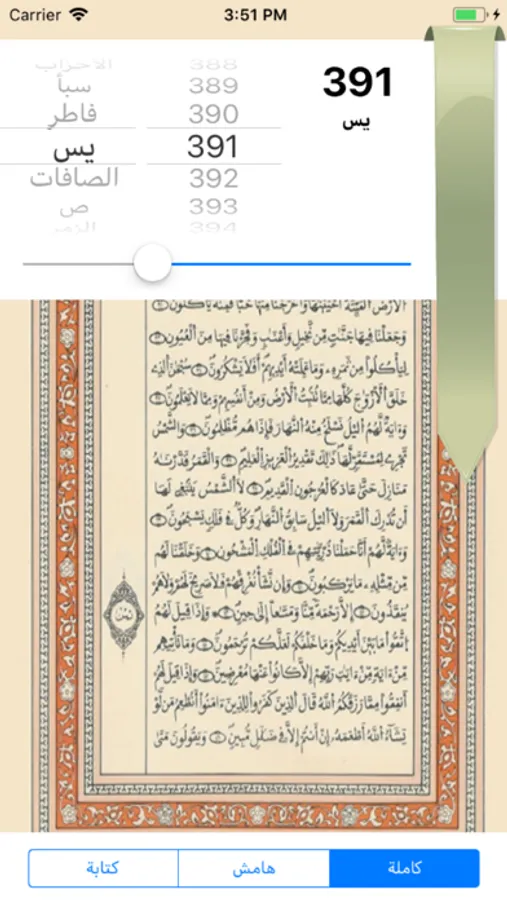 Carrier 3:51 PM
391
يس
الأحزاب 388
سبأ 389
فاطر 390
يس 391
الصافات 392
ص 393
الزمر 394
الارض الميتة احييناها واخرجنا منها حبا فمنه ياكلون
وجعلنا فيها جنات من نخيل وأعناب وفجرنا فيها من العيون
لياكلوا من ثمره وما عملته أيديهم أفلا يشكرون سبحان الذي
خلق الازواج كلها مما تنبت الارض ومن انفسهم ومما لا يعلمون
وءاية لهم اليل نسلخ منه النهار فإذا هم مظلمون والشمس
تجري لمستقر لها ذلك تقدير العزيز العليم والقمر قدرناه
منازل حتى عاد كالعرجون القديم لا الشمس ينبغي لها
أن تدرك القمر ولا اليل سابق النهار وكل في فلك يسبحون
وءاية لهم أنا حملنا ذرياتهم في الفلك المشحون وخلقنا لهم
من مثله ما يركبون وإن نشأ نغرقهم فلا صريخ لهم ولا هم
ينقذون إلا رحمة منا ومتاعا إلى حين وإذا قيل لهم
اتقوا ما بين أيديكم وما خلفكم لعلكم ترحمون وما تاتيهم
من ءاية من ءايات ربهم إلا كانوا عنها معرضين وإذا قيل لهم
أنفقوا مما رزقكم الله قال الذين كفروا للذين ءامنوا أنطعم من لو
يشاء الله أطعمه إن أنتم إلا في ضلال مبين ويقولون متى
ثمن
كاملة هامش كتابة